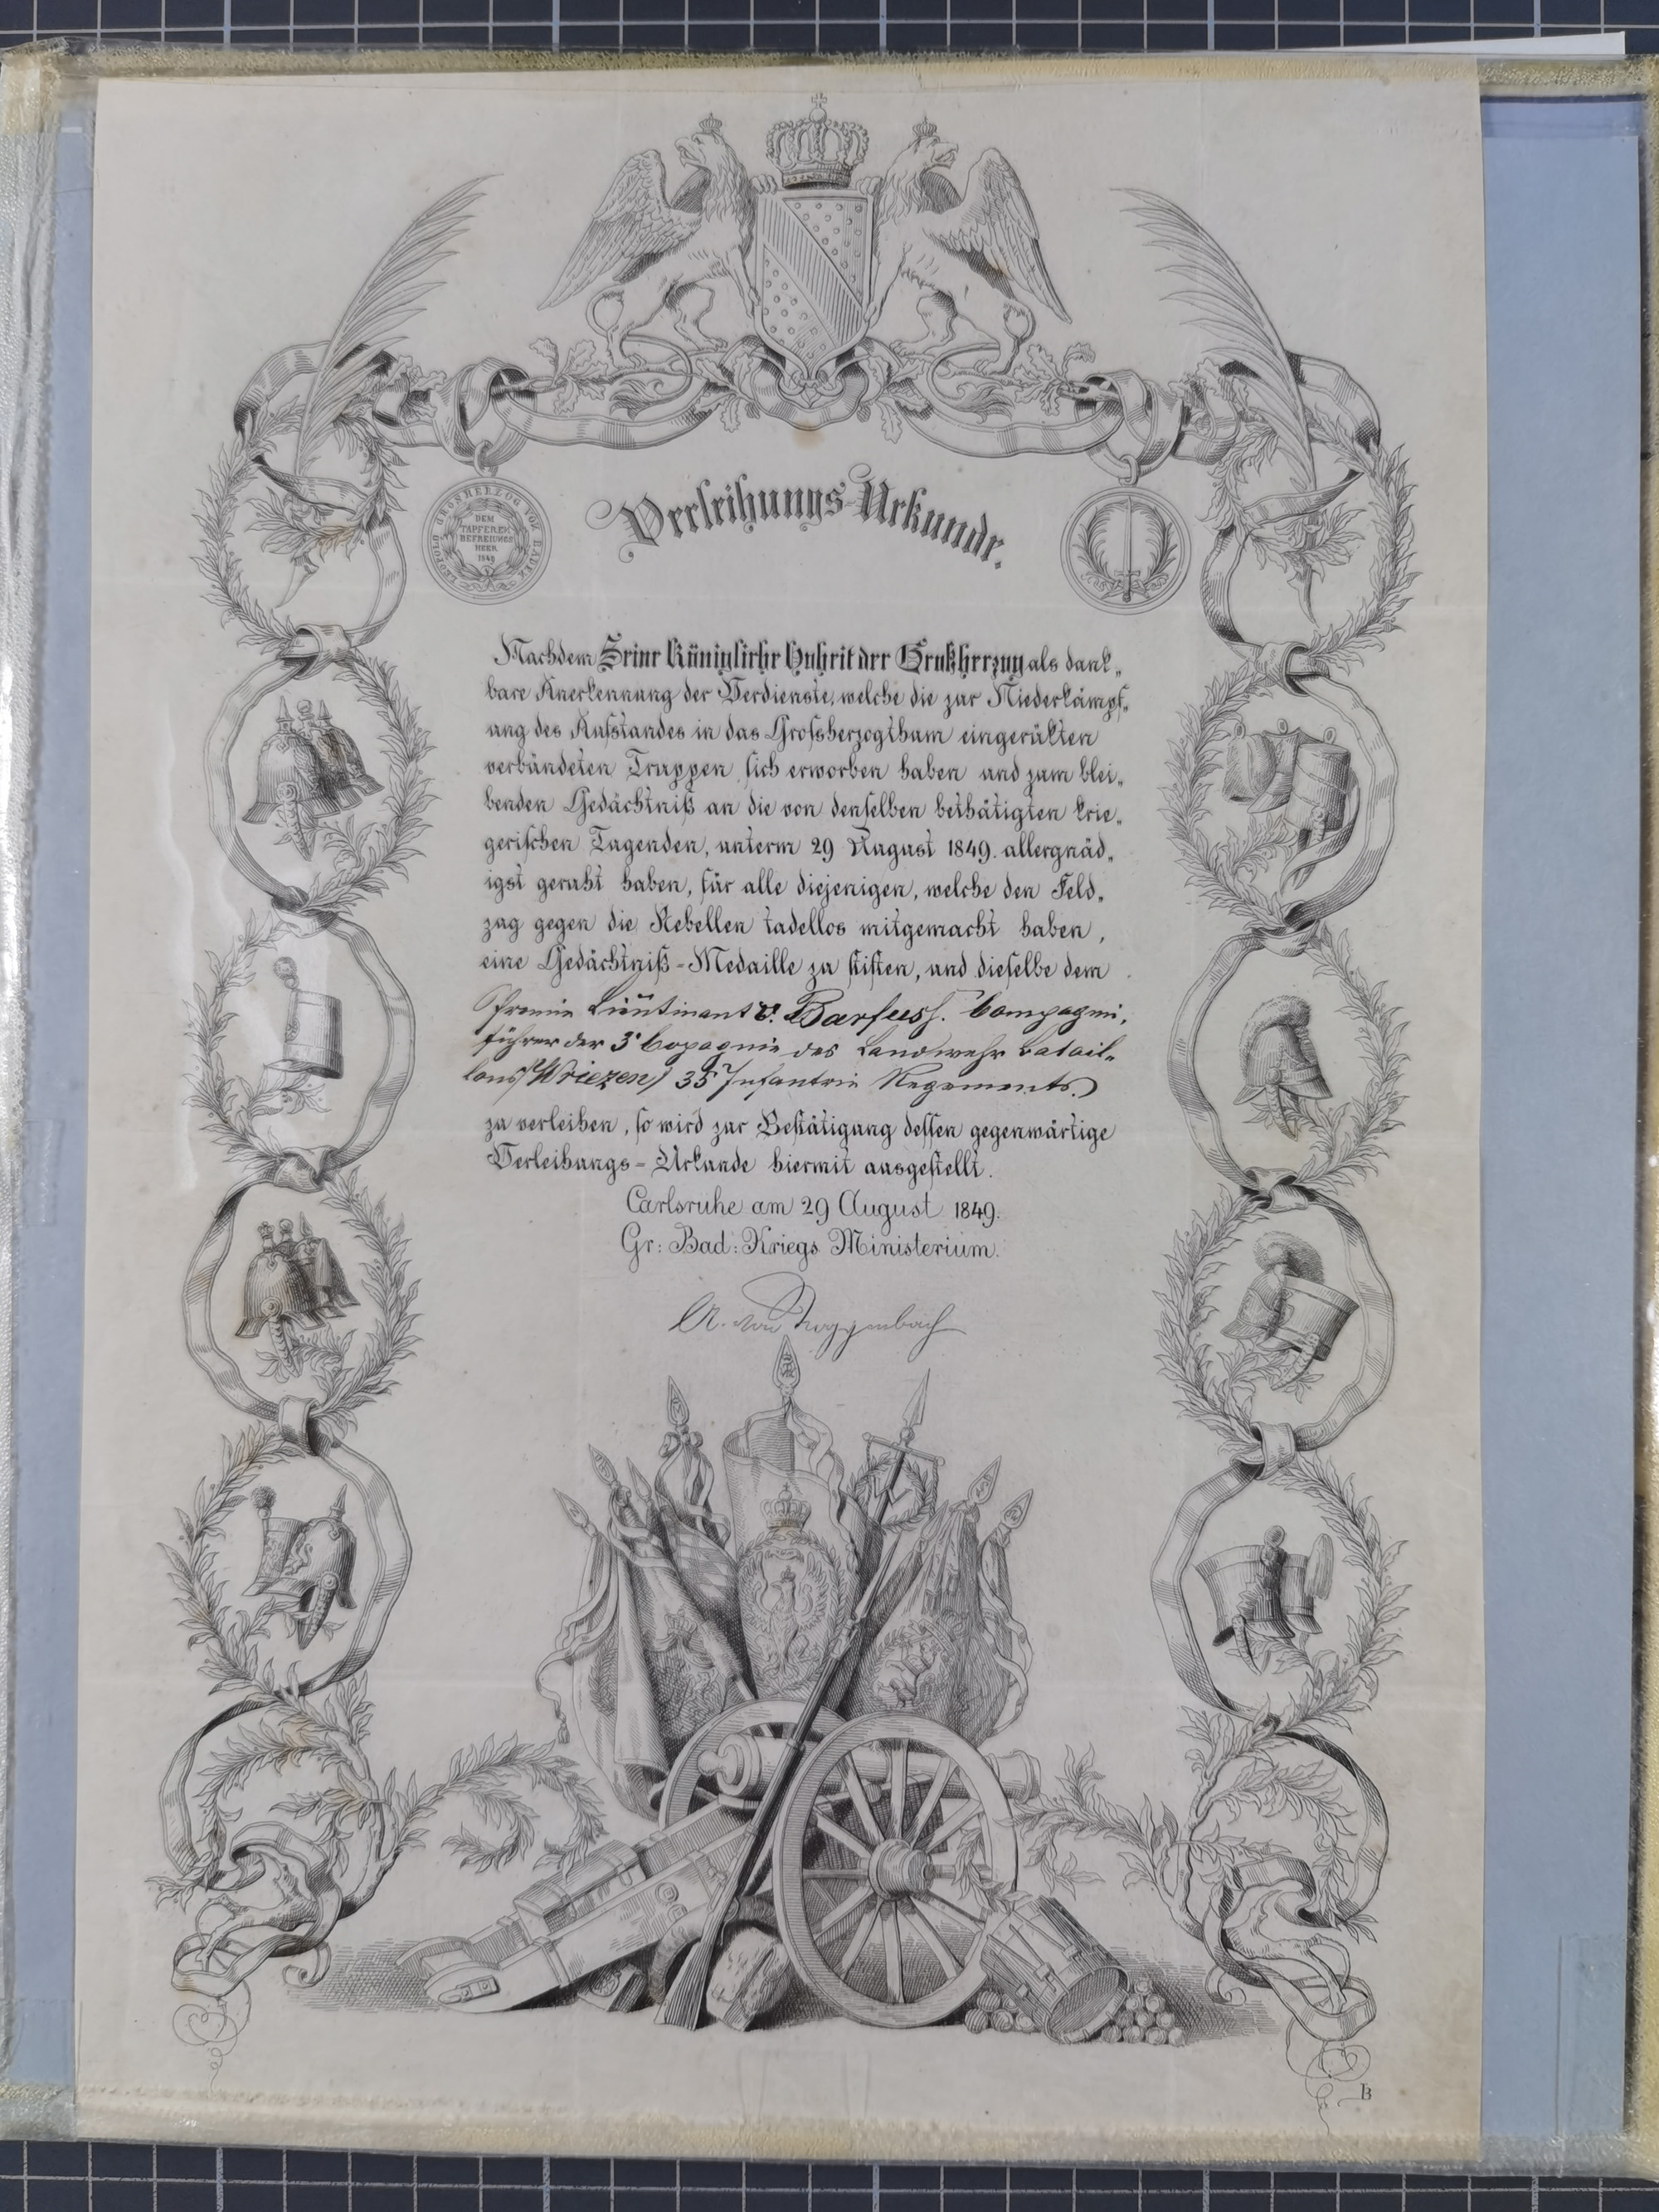 Verleihungs-Urkunde.
LEOPOLD GROSHERZOG VON BADEN
DEM
TAPFEREN
BEFREIUNGS
HEER
1849
Nachdem Seine Königliche Hoheit der Großherzog als dank„
bare Anerkennung der Verdienste, welche die zur Niederkämpf„
ung des Aufstandes in das Grofsherzogthum eingerükten
verbündeten Truppen sich erworben haben und zum blei„
benden Gedächtniß an die von denselben bethätigten krie„
gerischen Tugenden, unterm 29 August 1849. allergnäd„
igst geruht haben, für alle diejenigen, welche den Feld„
zug gegen die Rebellen tadellos mitgemacht haben,
eine Gedächtniß-Medaille zu stiften, und dieselbe dem
Premier Lieutinant v. Barfuss. Compagnie,
führer der 3t Copagnie des Landwehr Batail„
lons (Wriezen) 35t Infanterie Regements.
zu verleihen, so wird zur Bestätigung dessen gegenwärtige
Verleihungs-Urkunde hiermit ausgestellt.
Carlsruhe am 29 August 1849.
Gr: Bad: Kriegs Ministerium.
A. von Roggenbach
B